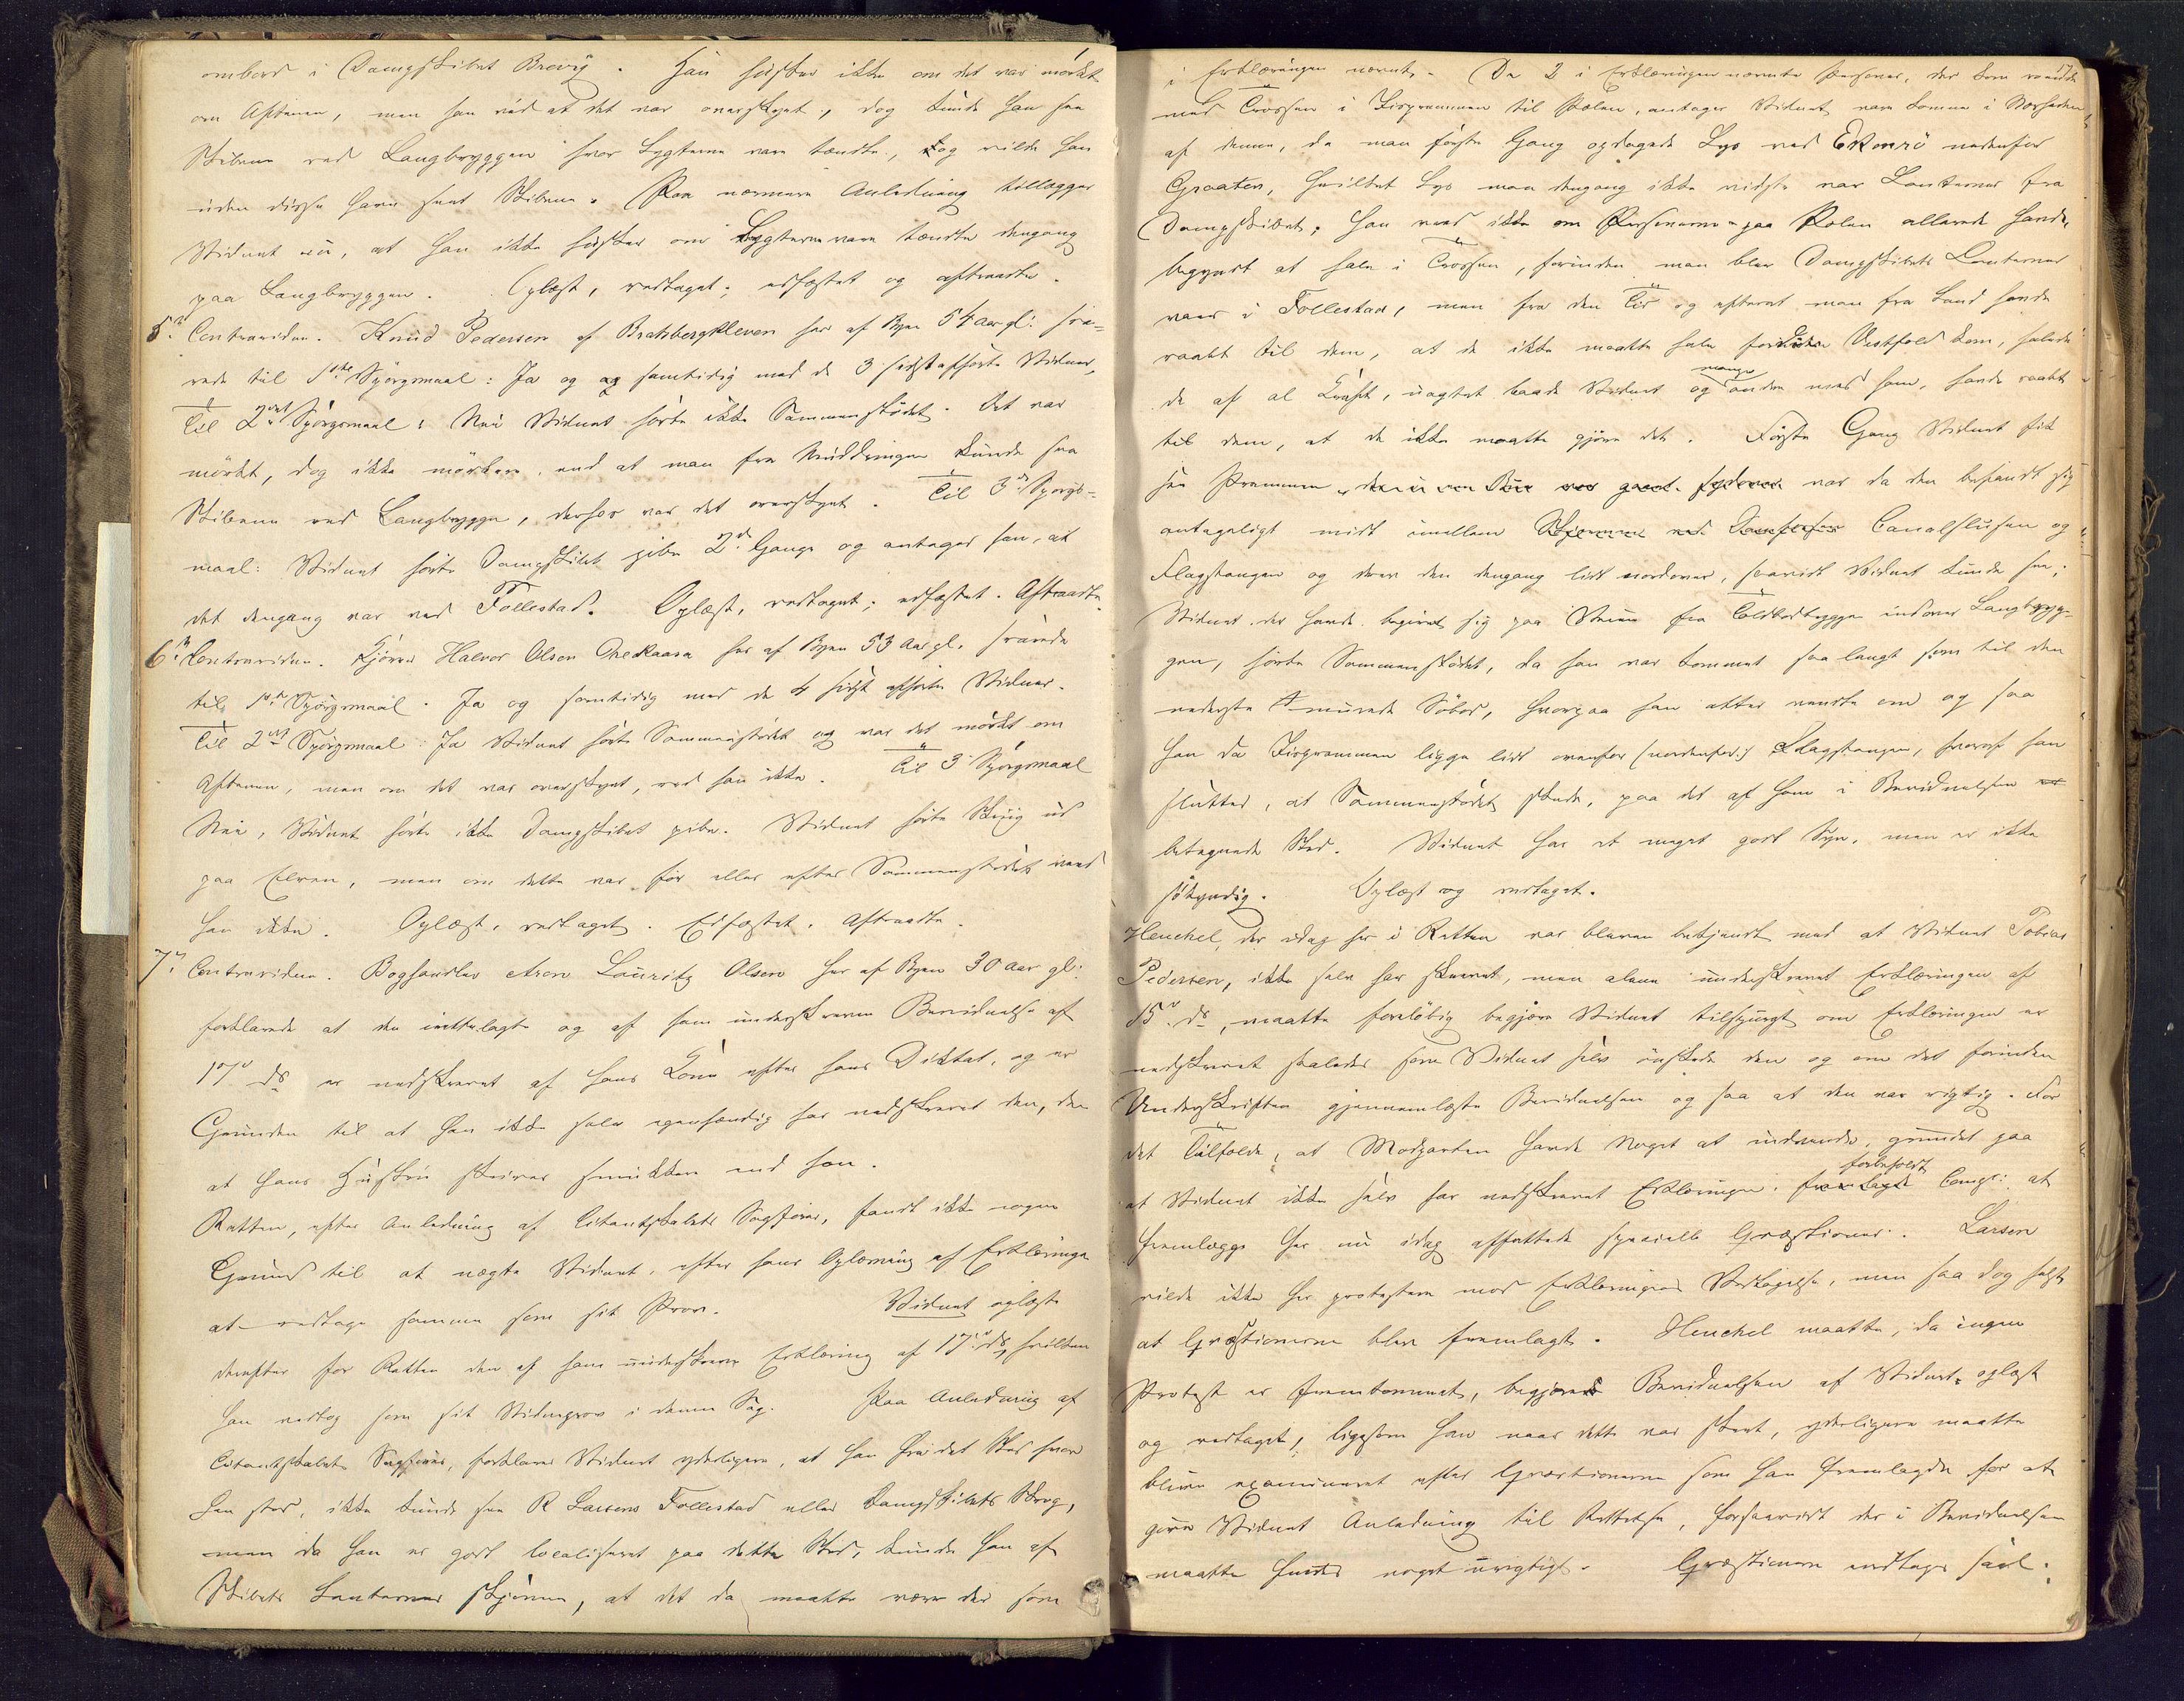 ombord i Dampskibet Brevig. Han husker ikke om det var mørkt
om Aftenen, men han véd at det var overskyet, dog kunde han see
Skibene ved Langbryggen hvor Lygterne vare tændte, dog vilde han
uden disse have seet Skibene. Paa nærmere Anledning tillægger
Vidnet nu, at han ikke husker om Lygterne vare tændte dengang
paa Langbryggen. Oplæst, vedtaget; edfæstet og aftraadte.
5.te Contravidne. Knud Pedersen af Bratsbergkleven her af Byen 54 Aar gl: sva-
rede til 1ste Spörgsmaal: Ja og samtidig med de 3 sidst afhørte Vidner,
Til 2det Spörgsmaal: Nei Vidnet hørte ikke Sammenstødet. Det var
mörkt, dog ikke mörkere, end at man fra Muddringen kunde see
Skibene ved Langbrygge, derhos var det overskyet. Til 3die Spörgs-
maal: Vidnet hørte Dampskibet pibe 2de Gange og antager han, at
det dengang var ved Follestad. Oplæst, vedtaget; edfæstet. Aftraadte.
6.te Contravidne. Halvor Olsen her af Byen 53 Aar gl. svarede
til 1ste Spörgsmaal. Ja og samtidig med de 4 sidst afhørte Vidner.
Til 2det Spörgsmaal: Ja Vidnet hørte Sammenstødet og var det mörkt om
Aftenen, men om det var overskyet, ved han ikke. Til 3 Spörgsmaal
Nei, Vidnet hørte ikke Dampskibet pibe. Vidnet hørte Skrig ud
paa Elven, men om dette var før eller efter Sammenstødet veed
han ikke. Oplæst, vedtaget. Edfæstet. Aftraadte.
7.de Contravidne. Boghandler Aron Lauritz Olsen her af Byen 30 Aar gl:
forklarede at den irettelagte og af ham underskrevne Bevidnelse af
17de ds er nedskrevet af hans Kone efter hans Diktat, og er
Grunden til at han ikke selv egenhændig har nedskrevet den, den
at hans Hustru skriver smukkere end han.
Retten, efter Anledning af Citantskabets Sagfører, fandt ikke nogen
Grund til at nægte Vidnet, efter hans Oplæsning af Erklæringen
at vedtage samme som sit Prov. Vidnet oplæste
derefter for Retten den af ham underskrevne Erklæring af 17de ds, hvilken
han vedtog som sit Vidneprov i denne Sag. Paa Anledning af
Citantskabets Sagfører, forklarer Vidnet yderligere, at han fra det Sted hvor
han stod, ikke kunde see R Larsens Follestad eller Dampskibets Skrog,
men da han er godt localiseret paa dette Sted, kunde han af
Skibets Lanterner skjönne, at det da maatte være der som
i Erklæringen nævnt. De 2 i Erklæringen nævnte Personer, der kom roende
med Trossen i Fiirprammen til Pælen, antager Vidnet vare komne i Nærheden
af denne, da man første Gang opdagede Lys ved Ekornrö nedenfor
Graaten, hvilket Lys man dengang ikke vidste var Lanterner fra
Dampskibet, han veed ikke om Personerne paa Pælen allerede havde
begyndt at hale i Trossen, forinden man blev Dampskibets Lanterner
vaer i Follestad, men fra den Tid og efterat man fra Land havde
raabt til dem, at de ikke maatte hale ford Vestfold kom, halede
de af al Kraft, uagtet baade Vidnet og mange andre med ham, havde raabt
til dem, at de ikke maatte gjøre det. Første Gang Vidnet fik
see Prammen var da den befandt sig
antageligt midt imellem Canalslusen og
Flagstangen og drev den dengang lidt nordover, saavidt Vidnet kunde see;
Vidnet der havde begivet sig paa Veien fra Toldbodbryggen indover Langbryg-
gen, hørte Sammenstødet, da han var kommet saa langt som til den
nederste murede Söbod, hvorpaa han atter vendte om og saa
han da Fiirprammen ligge lidt ovenfor (nordenfor:) Flagstangen, hvoraf han
slutter, at Sammenstødet skede, paa det af ham i Bevidnelsen
betegnede Sted. Vidnet har et meget godt Syn, men er ikke
søkyndig. Oplæst og vedtaget.
Henckel, der idag her i Retten var bleven bekjendt med at Vidnet Tobias
Pedersen, ikke selv har skrevet, men alene underskrevet Erklæringen af
15de ds, maatte foreløbig begjære Vidnet tilspurgt om Erklæringen er
nedskrevet saaledes som Vidnet selv önskede den og om det forinden
Underskriften gjennemlæste Bevidnelsen og saa at den var rigtig. For
det Tilfælde, at Modparten havde Noget at indvende, grundet paa
at Vidnet ikke selv har nedskrevet Erklæringen, forbeholdt Comp: at
fremlægge her nu idag affattede specielle Qvæstioner. Larsen
vilde ikke her protestere mod Erklæringens Vedtagelse, men saa dog helst
at Qvæstionerne blev fremlagt. Henckel maatte, da ingen
Protest er fremkommet, begjære Bevidnelsen af Vidnet oplæst
og vedtaget, ligesom han naar dette var skeet, yderligere maatte
blive examineret efter Qvæstionerne som han fremlagde for at
give Vidnet Anledning til Rettelse, forsaavidt der i Bevidnelsen
maatte findes noget urigtigt. Qvæstionerne modtages saal: